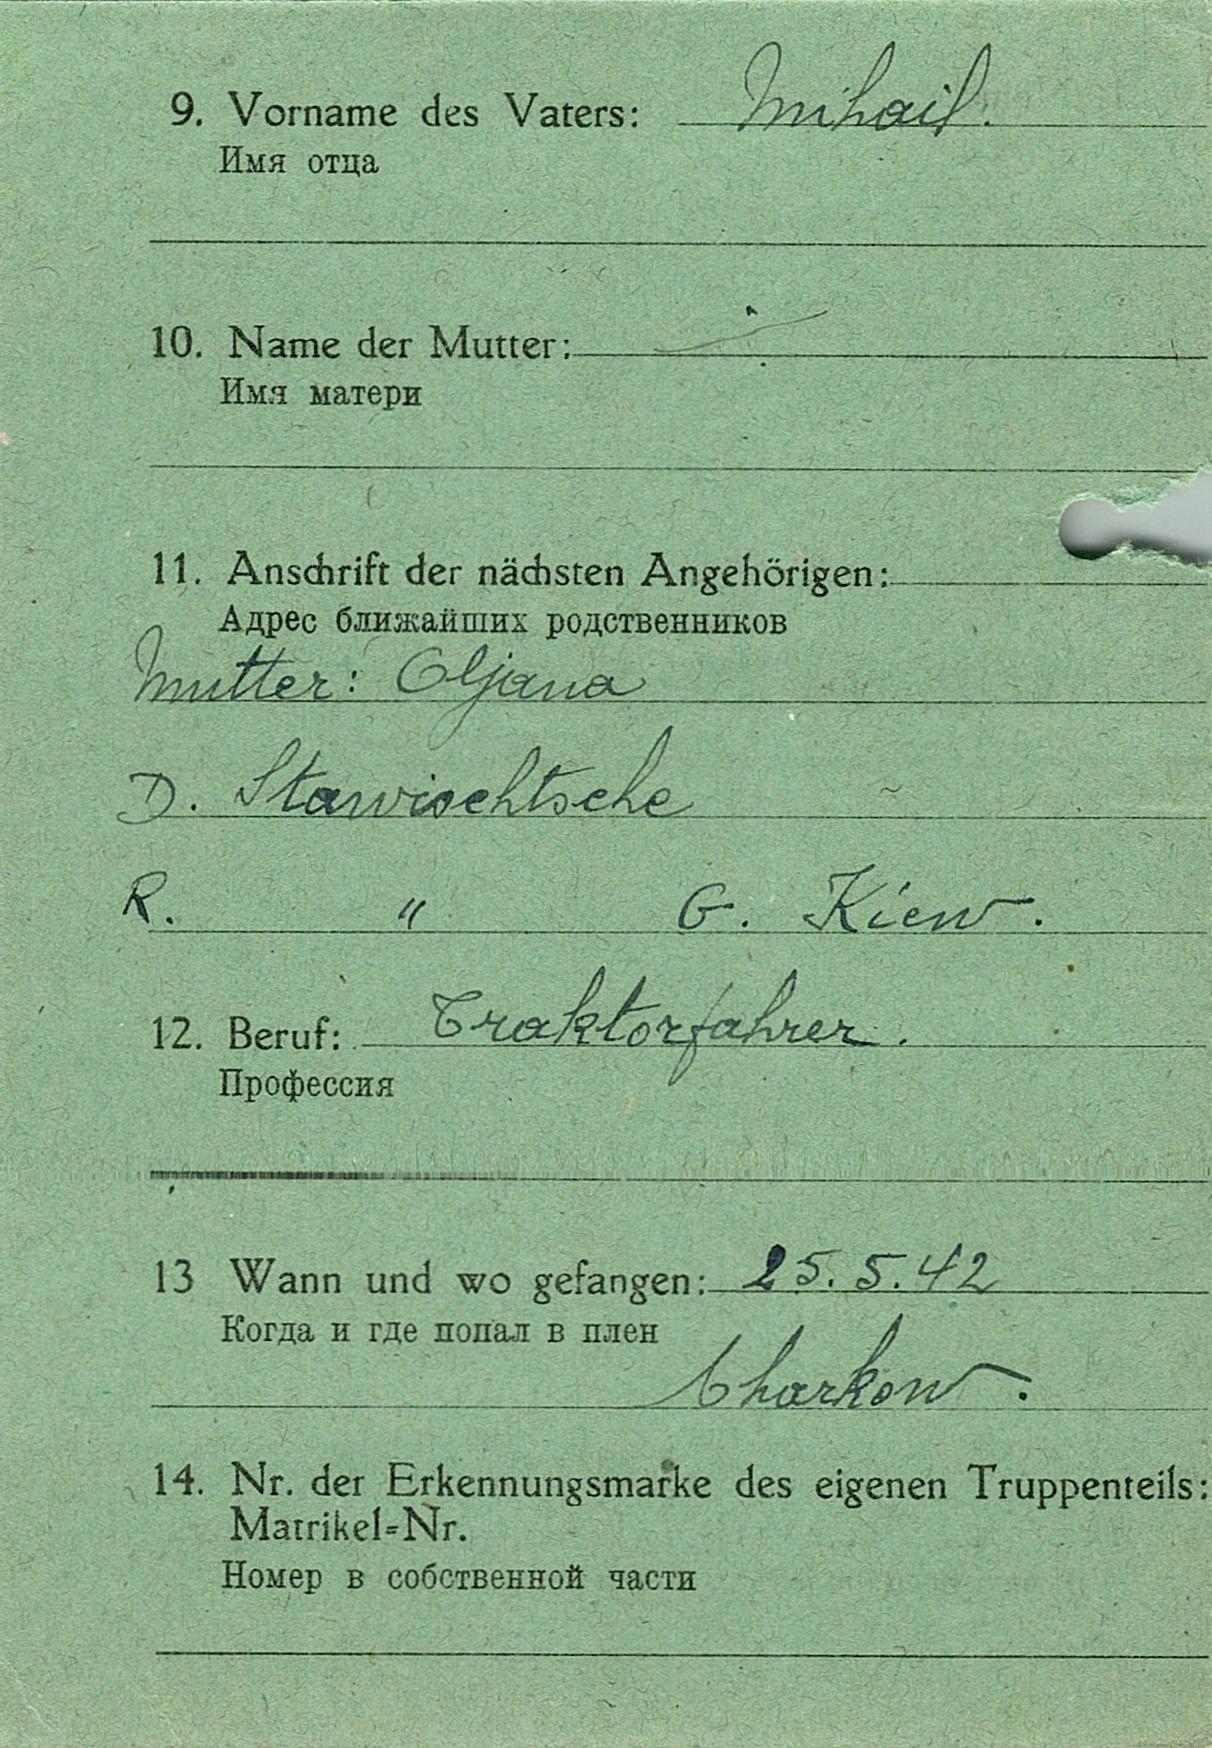 9. Vorname des Vaters: Mihail.
Имя отца
10. Name der Mutter:
Имя матери
11. Anschrift der nächsten Angehörigen:
Адрес ближайших родственников
Mutter: Oljana
D. Stawischtsche
R. " G. Kiew.
12. Beruf: Traktorfahrer.
Профессия
13 Wann und wo gefangen: 25.5.42
Когда и где попал в плен
Charkow.
14. Nr. der Erkennungsmarke des eigenen Truppenteils:
Matrikel=Nr.
Номер в собственной части